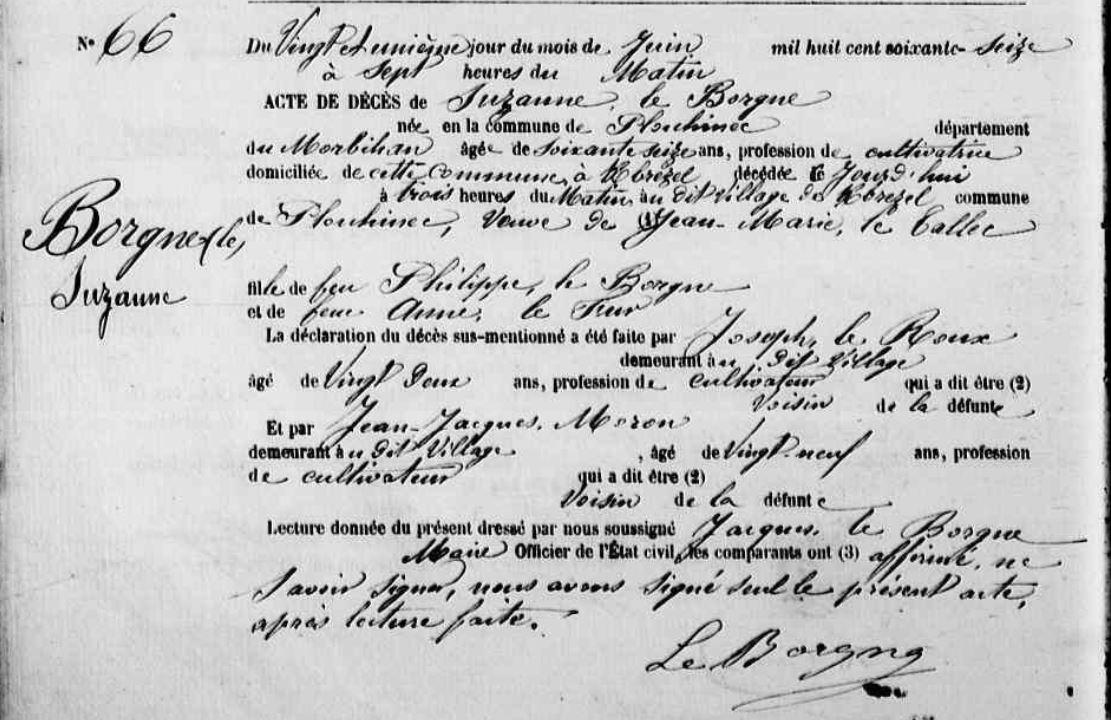 N° 66
Du Vingt et unième jour du mois de Juin mil huit cent soixante-seize
à Sept heures du Matin
ACTE DE DÉCÈS de Suzanne, le Borgne
née en la commune de Plouhinec département
du Morbihan âgée de soixante seize ans, profession de cultivatrice
domiciliée de cette Commune, à Kbrézel décédée ce Jourd'hui
à trois heures du Matin, au dit village de Kbrezel commune
de Plouhinec, Veuve de Jean-Marie, le Tallec
Borgne (le,
Suzanne
fille de feu Philippe, le Borgne
et de feue Anne, le Fur
La déclaration du décès sus-mentionné a été faite par Joseph, le Roux
demeurant au dit Village
âgé de Vingt Deux ans, profession de cultivateur qui a dit être (2)
Voisin de la défunte
Et par Jean-Jacques, Moron
demeurant au dit Village, âgé de Vingt-neuf ans, profession
de cultivateur qui a dit être (2)
Voisin de la défunte
Lecture donnée du présent dressé par nous soussigné Jacques, le Borgne
Maire Officier de l'État civil, les comparants ont (3) affirmé, ne
Savoir signer, nous avons signé seul le présent acte,
après lecture faite.
Le Borgne